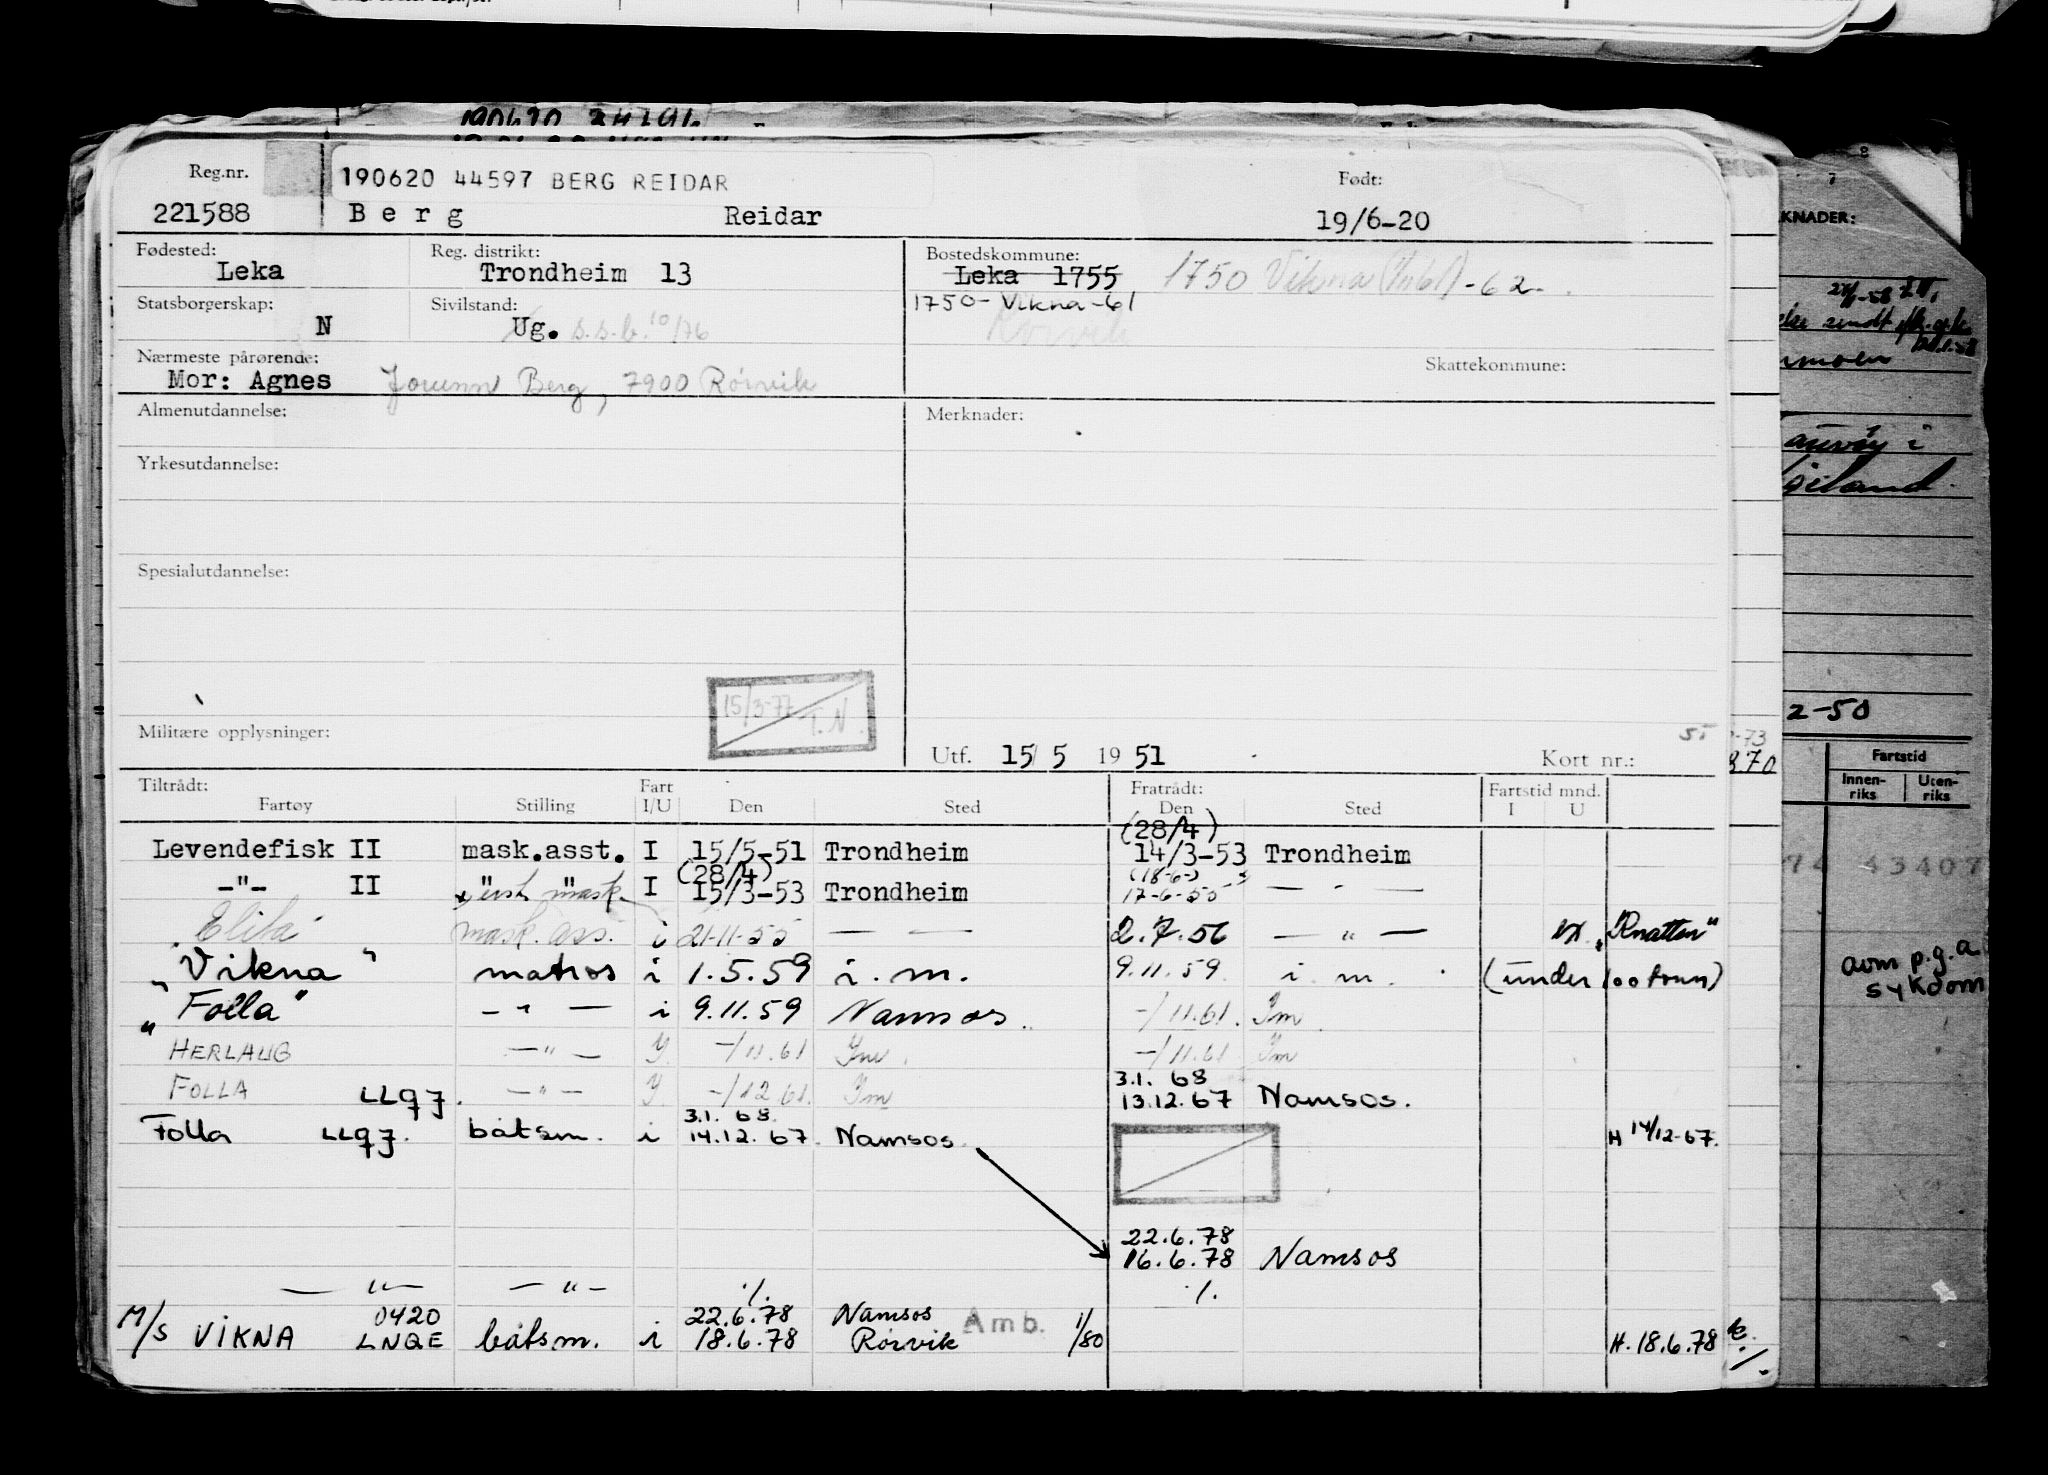 Reg.nr. 190620 44597 BERG REIDAR Født:
221588 Berg Reidar 19/6-20
Fødested: Reg. distrikt: Bostedskommune:
Leka Trondheim 13 Leka 1755 1750 Vikna (Innbl) -62.
Statsborgerskap: Sivilstand: 1750- Vikna -61
N Ug. s.s.b. 10/76 Rørvik
Nærmeste pårørende: Skattekommune:
Mor: Agnes Jorunn Berg, 7900 Rørvik
Almenutdannelse: Merknader:
Yrkesutdannelse:
Spesialutdannelse:
15/3-77 T.N.
Militære opplysninger:
Utf. 15/5 1951 Kort nr.:
Tiltrådt: Fart Fratrådt: Fartstid mnd.
Fartøy Stilling I/U Den Sted Den Sted I U
(28/4)
Levendefisk II mask.asst. I 15/5-51 Trondheim 14/3-53 Trondheim
(28/4) (18-6-)
-"- II mask. I 15/3-53 Trondheim 17-6-55 — " —
Elita mask. ass. i 21-11-55 — — 2.7.56 — " — "Knatten"
"Vikna" matros i 1.5.59 i. m. 9.11.59. i. m. (under 100 tonn)
"Folla" — " — i 9.11.59 Namsos -/11.61. Im
HERLAUG — " — Y. -/11.61 Im -/11.61 Im
3.1. 68
FOLLA LLQJ. — " — Y. -/12.61. Im 13.12.67 Namsos.
3.1. 68.
Folla LLQJ. båtsm. i 14.12.67. Namsos. H 14/12-67.
22.6.78
16.6.78 Namsos
— " — — " — ./. ./.
0420 22.6.78 Namsos
M/S VIKNA LNQE båtsm. i 18.6.78 Rørvik Amb. 1/80 H. 18.6.78
KNADER:
2-50
Fartstid
Innen-riks Uten-riks
43407
avm p.g.a
sykdom